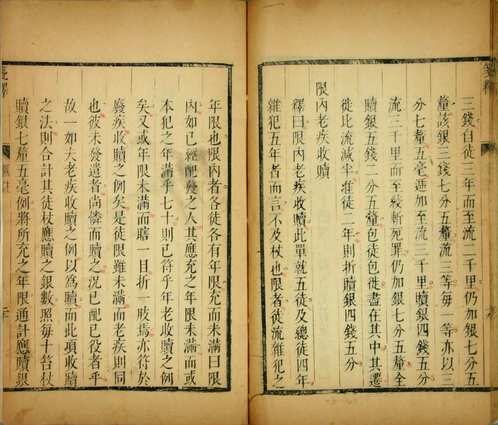 三錢自徒三年而至流二千里仍加銀七分五
釐該銀三錢七分五釐流三等每一等亦以三
分七釐五毫遞加至流三千里贖銀四錢五分
流三千里而至絞斬死罪仍加銀七分五釐全
贖銀五錢二分五釐包徒包徙盡在其中其遷
徙比流減半准徒二年則折贖銀四錢五分
限內老疾收贖
釋曰限內老疾收贖此單就五徒及總徒四年
雜犯五年者而言不及杖也限者徒流雜犯之
年限也限內者各徒各有年限充而未滿
內如已經配發之人其應充之年限未滿而或
本犯之年滿乎七十則已符乎年老收贖之例
矣又或年限未滿而瞎一目折一肢焉亦符於
廢疾收贖之例矣是徒限雖未滿而老疾則同
也彼未發遣者尚憐而贖之況已配已役者乎
故一如夫老疾收贖之例以爲贖而此項收贖
之法則合計其徒杖應贖之銀數照每十笞杖
贖銀七釐五毫例將所充之年限通計應贖銀
箋釋
箋釋